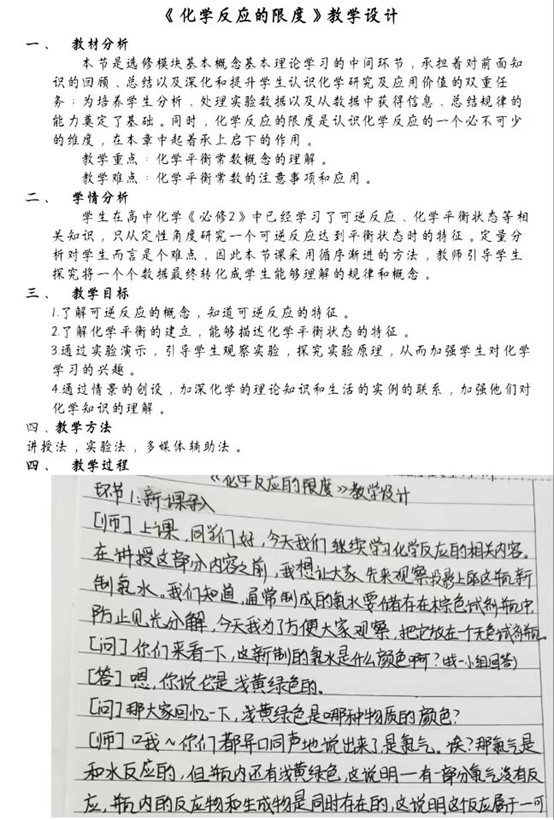 《化学反应的限度》教学设计
一、 教材分析
本节是选修模块基本概念基本理论学习的中间环节，承担着对前面知
识的回顾、总结以及深化和提升学生认识化学研究及应用价值的双重任
务；为培养学生分析、处理实验数据以及从数据中获得信息、总结规律的
能力奠定了基础。同时，化学反应的限度是认识化学反应的一个必不可少
的维度，在本章中起着承上启下的作用。
教学重点：化学平衡常数概念的理解。
教学难点：化学平衡常数的注意事项和应用。
二、 学情分析
学生在高中化学《必修2》中已经学习了可逆反应、化学平衡状态等相
关知识，只从定性角度研究一个可逆反应达到平衡状态时的特征。定量分
析对学生而言是个难点，因此本节课采用循序渐进的方法，教师引导学生
探究将一个个数据最终转化成学生能够理解的规律和概念。
三、 教学目标
1.了解可逆反应的概念，知道可逆反应的特征。
2.了解化学平衡的建立，能够描述化学平衡状态的特征。
3.通过实验演示，引导学生观察实验，探究实验原理，从而加强学生对化学
学习的兴趣。
4.通过情景的创设，加深化学的理论知识和生活的实例的联系，加强他们对
化学知识的理解。
四、教学方法
讲授法，实验法，多媒体辅助法。
四、 教学过程
《化学反应的限度》教学设计
环节1:新课导入
[师]上课，同学们好，今天我们继续学习化学反应的相关内容。
在讲授这部分内容之前，我想让大家先来观察投影上的这瓶新
制氯水。我们知道，通常制成的氯水要储存在棕色试剂瓶中
防止见光分解，今天我为了方便大家观察，把它放在一个无色试剂瓶。
[问]你们来看一下，这新制的氯水是什么颜色啊？（某一小组回答）
[答]嗯，你说它是浅黄绿色的。
[问]那大家回忆一下，浅黄绿色是哪种物质的颜色？
[师]哦～你们都异口同声地说出来了，是氯气。诶？那氯气是
和水反应的，但瓶内还有浅黄绿色，这说明一有一部分氯气没有反
应，瓶内的反应物和生成物是同时存在的，这说明这个反应属于一可